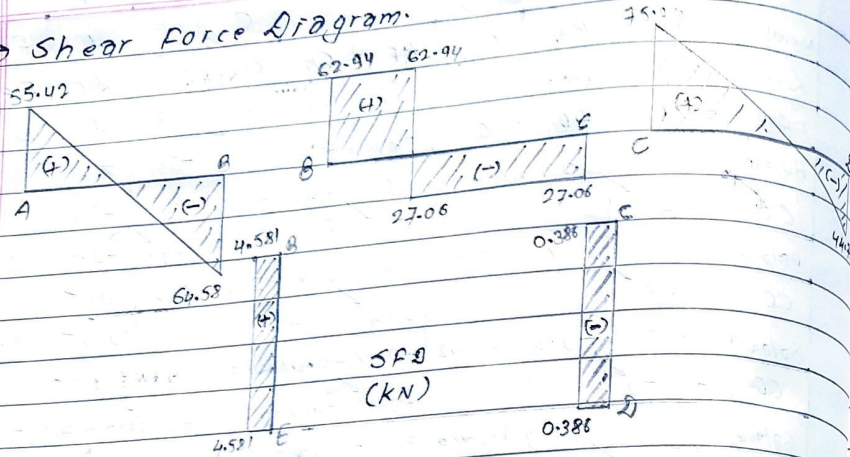 Shear Force Diagram.
55.42
(+)
A
B
(-)
64.58
62.94 62.94
(+)
B
C
(-)
27.06
27.06
(+)
C
(-)
4.581 B
(+)
4.581 E
SFD
(KN)
0.386 C
(-)
0.386 D